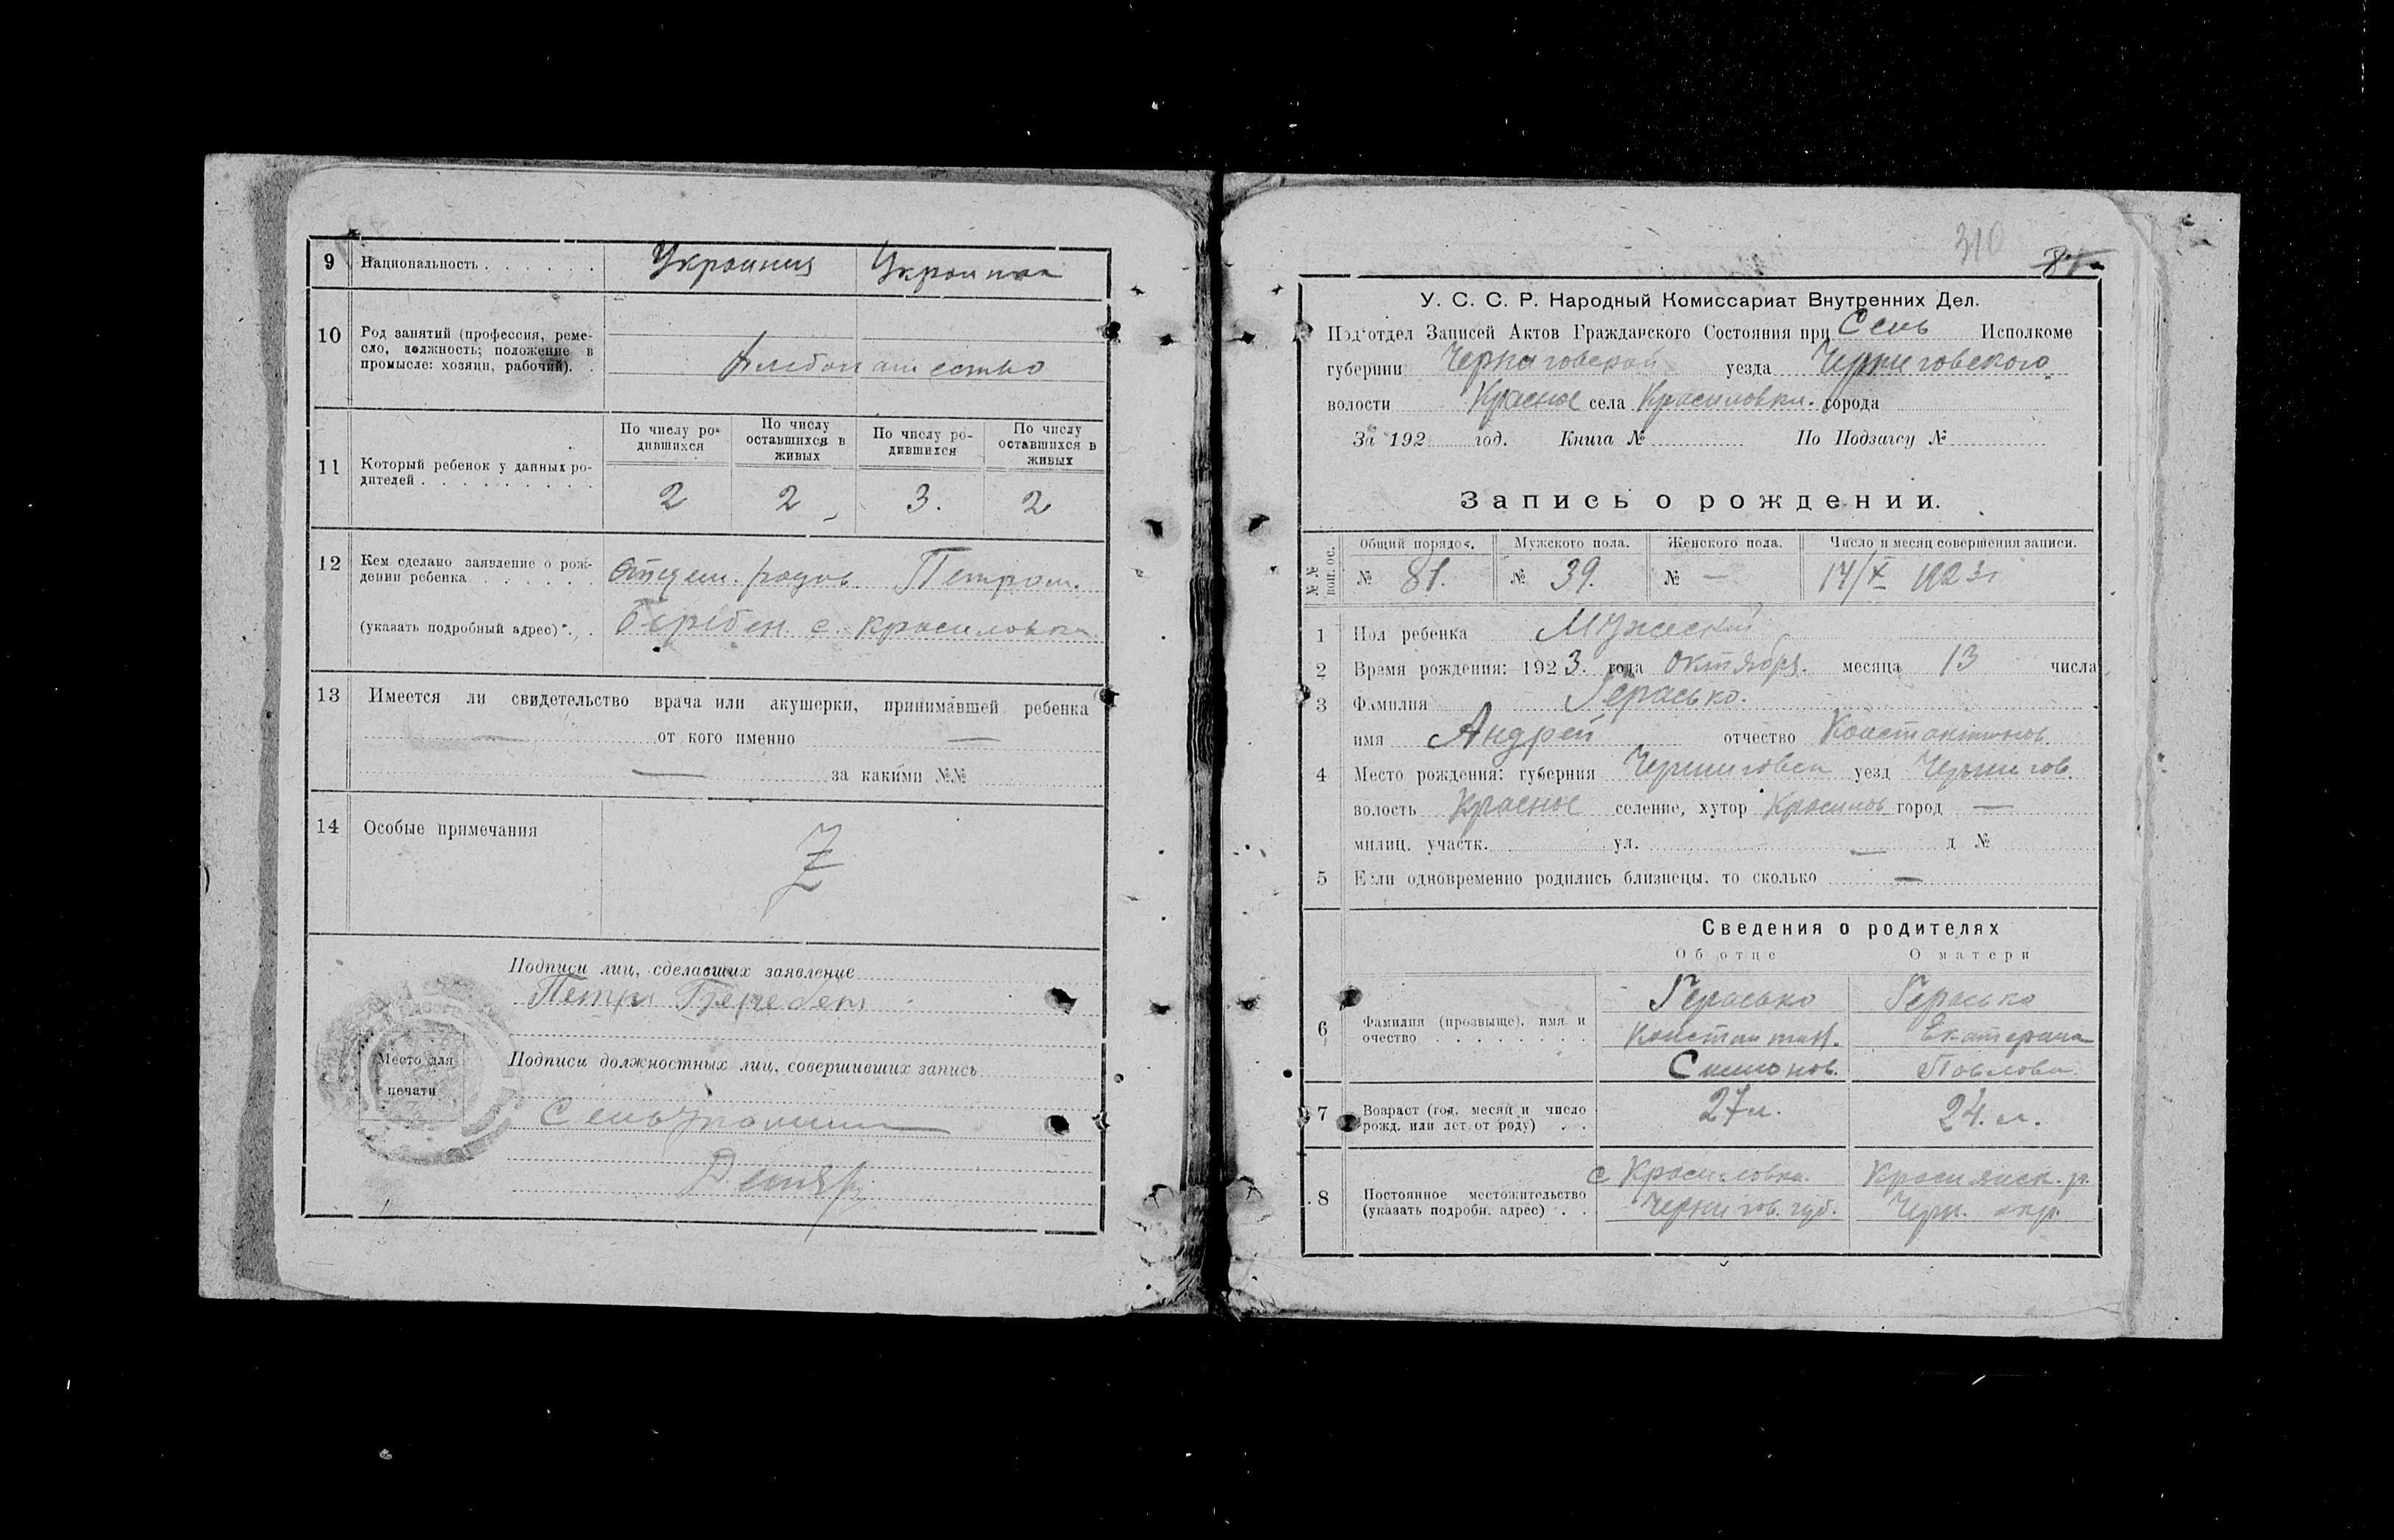 9 Национальность . . . . . . Украинец Украинка
10 Род занятий (профессия, реме-
сло, должность; положение в
промысле: хозяин, рабочий). .
Хлебопашество
11 Который ребенок у данных ро-
дителей . . . . . . . . . .
По числу ро-
дившихся
По числу
оставшихся в
живых
По числу ро-
дившихся
По числу
оставшихся в
живых
2 2 3. 2
12 Кем сделано заявление о рож-
дении ребенка . . . . . .
Отцем. родов Петром.
(указать подробный адрес) . .
Беребен с. Красиловка
13 Имеется ли свидетельство врача или акушерки, принимавшей ребенка
— от кого именно —
— за какими №№
14 Особые примечания
Z
Подписи лиц, сделавших заявление
Петр Беребен
Место для
печати
Подписи должностных лиц, совершивших запись
310
81
У. С. С. Р. Народный Комиссариат Внутренних Дел.
Под'отдел Записей Актов Гражданского Состояния при Сель Исполкоме
губернии Черниговской уезда Черниговского
волости Красное села Красиловки. города
За 192 год. Книга № По Подзагсу №
Запись о рождении.
№№ воп. ос.
Общий порядок. Мужского пола. Женского пола. Число и месяц совершения записи.
№ 81. № 39. № — 14/X 1923 г
1 Пол ребенка Мужеский
2 Время рождения: 1923. года Октября. месяца 13 числа
3 Фамилия Герасько.
имя Андрей отчество Константинов.
4 Место рождения: губерния Черниговск уезд Чернигов.
волость Красное селение, хутор Красилов город —
милиц. участк. ул. — д №
5 Если одновременно родились близнецы, то сколько —
Сведения о родителях
Об отце О матери
6 Фамилия (прозвыще), имя и
очество . . . . . . . .
Герасько Герасько
Константин. Екатерина
Симонов. Павлова.
7 Возраст (год, месяц и число
рожд. или лет от роду) . .
27 л. 24. л.
8 Постоянное местожительство
(указать подробн. адрес) . .
с Красиловка. Краснянск. р.
Чернигов. губ. Черн. окр.